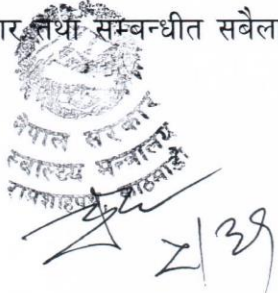 तथा सम्बन्धीत सबैल
नेपाल सरकार
स्वास्थ्य मन्त्रालय
रामशाहपथ, काठमाडौं